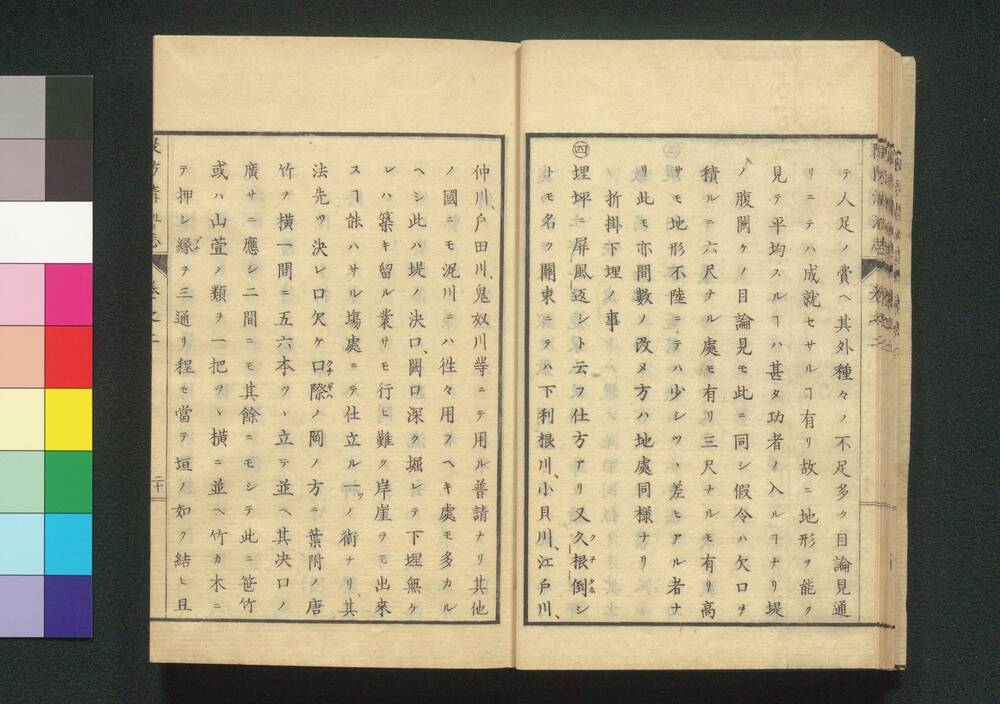 テ人足ノ費ヘ其外種々ノ不足多ク目論見通
リニテハ成就セサルヿ有リ故ニ地形ヲ能ク
見テ平均スルヿハ甚タ功者ノ入ルヿナリ堤
ノ腹闕ケノ目論見モ此ニ同シ假令ハ欠口ヲ
積ルニ六尺ナルル處モ有リ三尺ナルモ有リ高
サモ地形不陸ニテハ少シツヽ差ヒアル者ナ
リ此モ亦間數ノ改メ方ハ地處同様ナリ
折掛下埋ノ事
㊃埋坪ニ屏風返シト云フ仕方アリ又久根倒シ
クネ タホ
トモ名ク關東ニテハ下利根川、小貝川、江戸川、
仲川、戸田川、鬼奴川等ニテ用ル普請ナリ其他
ノ國ニモ泥川ニハ徃々用フヘキ處モ多カル
ヘシ此ハ堤ノ決口、闕口深ク堀レテ下埋無ケ
レハ築キ留ル業サモ行ヒ難ク岸崖ヲモ出來
スヿ能ハサル塲處ニテ仕立ル一ツノ術ナリ其
法先ツ決レ口欠ケ口際ノ岡ノ方ニ葉附ノ唐
竹ヲ横一間ニ五六本ツヽ立テ並ヘ其決口ノ
廣サニ應シ二間ニモ其餘ニモシテ此ニ笹竹
或ハ山萱ノ類ヲ一把ツヽ横ニ並ヘ竹カ木ニ
テ押シ縁ヲ三通リ程モ當テ垣ノ如ク結ヒ且
二十